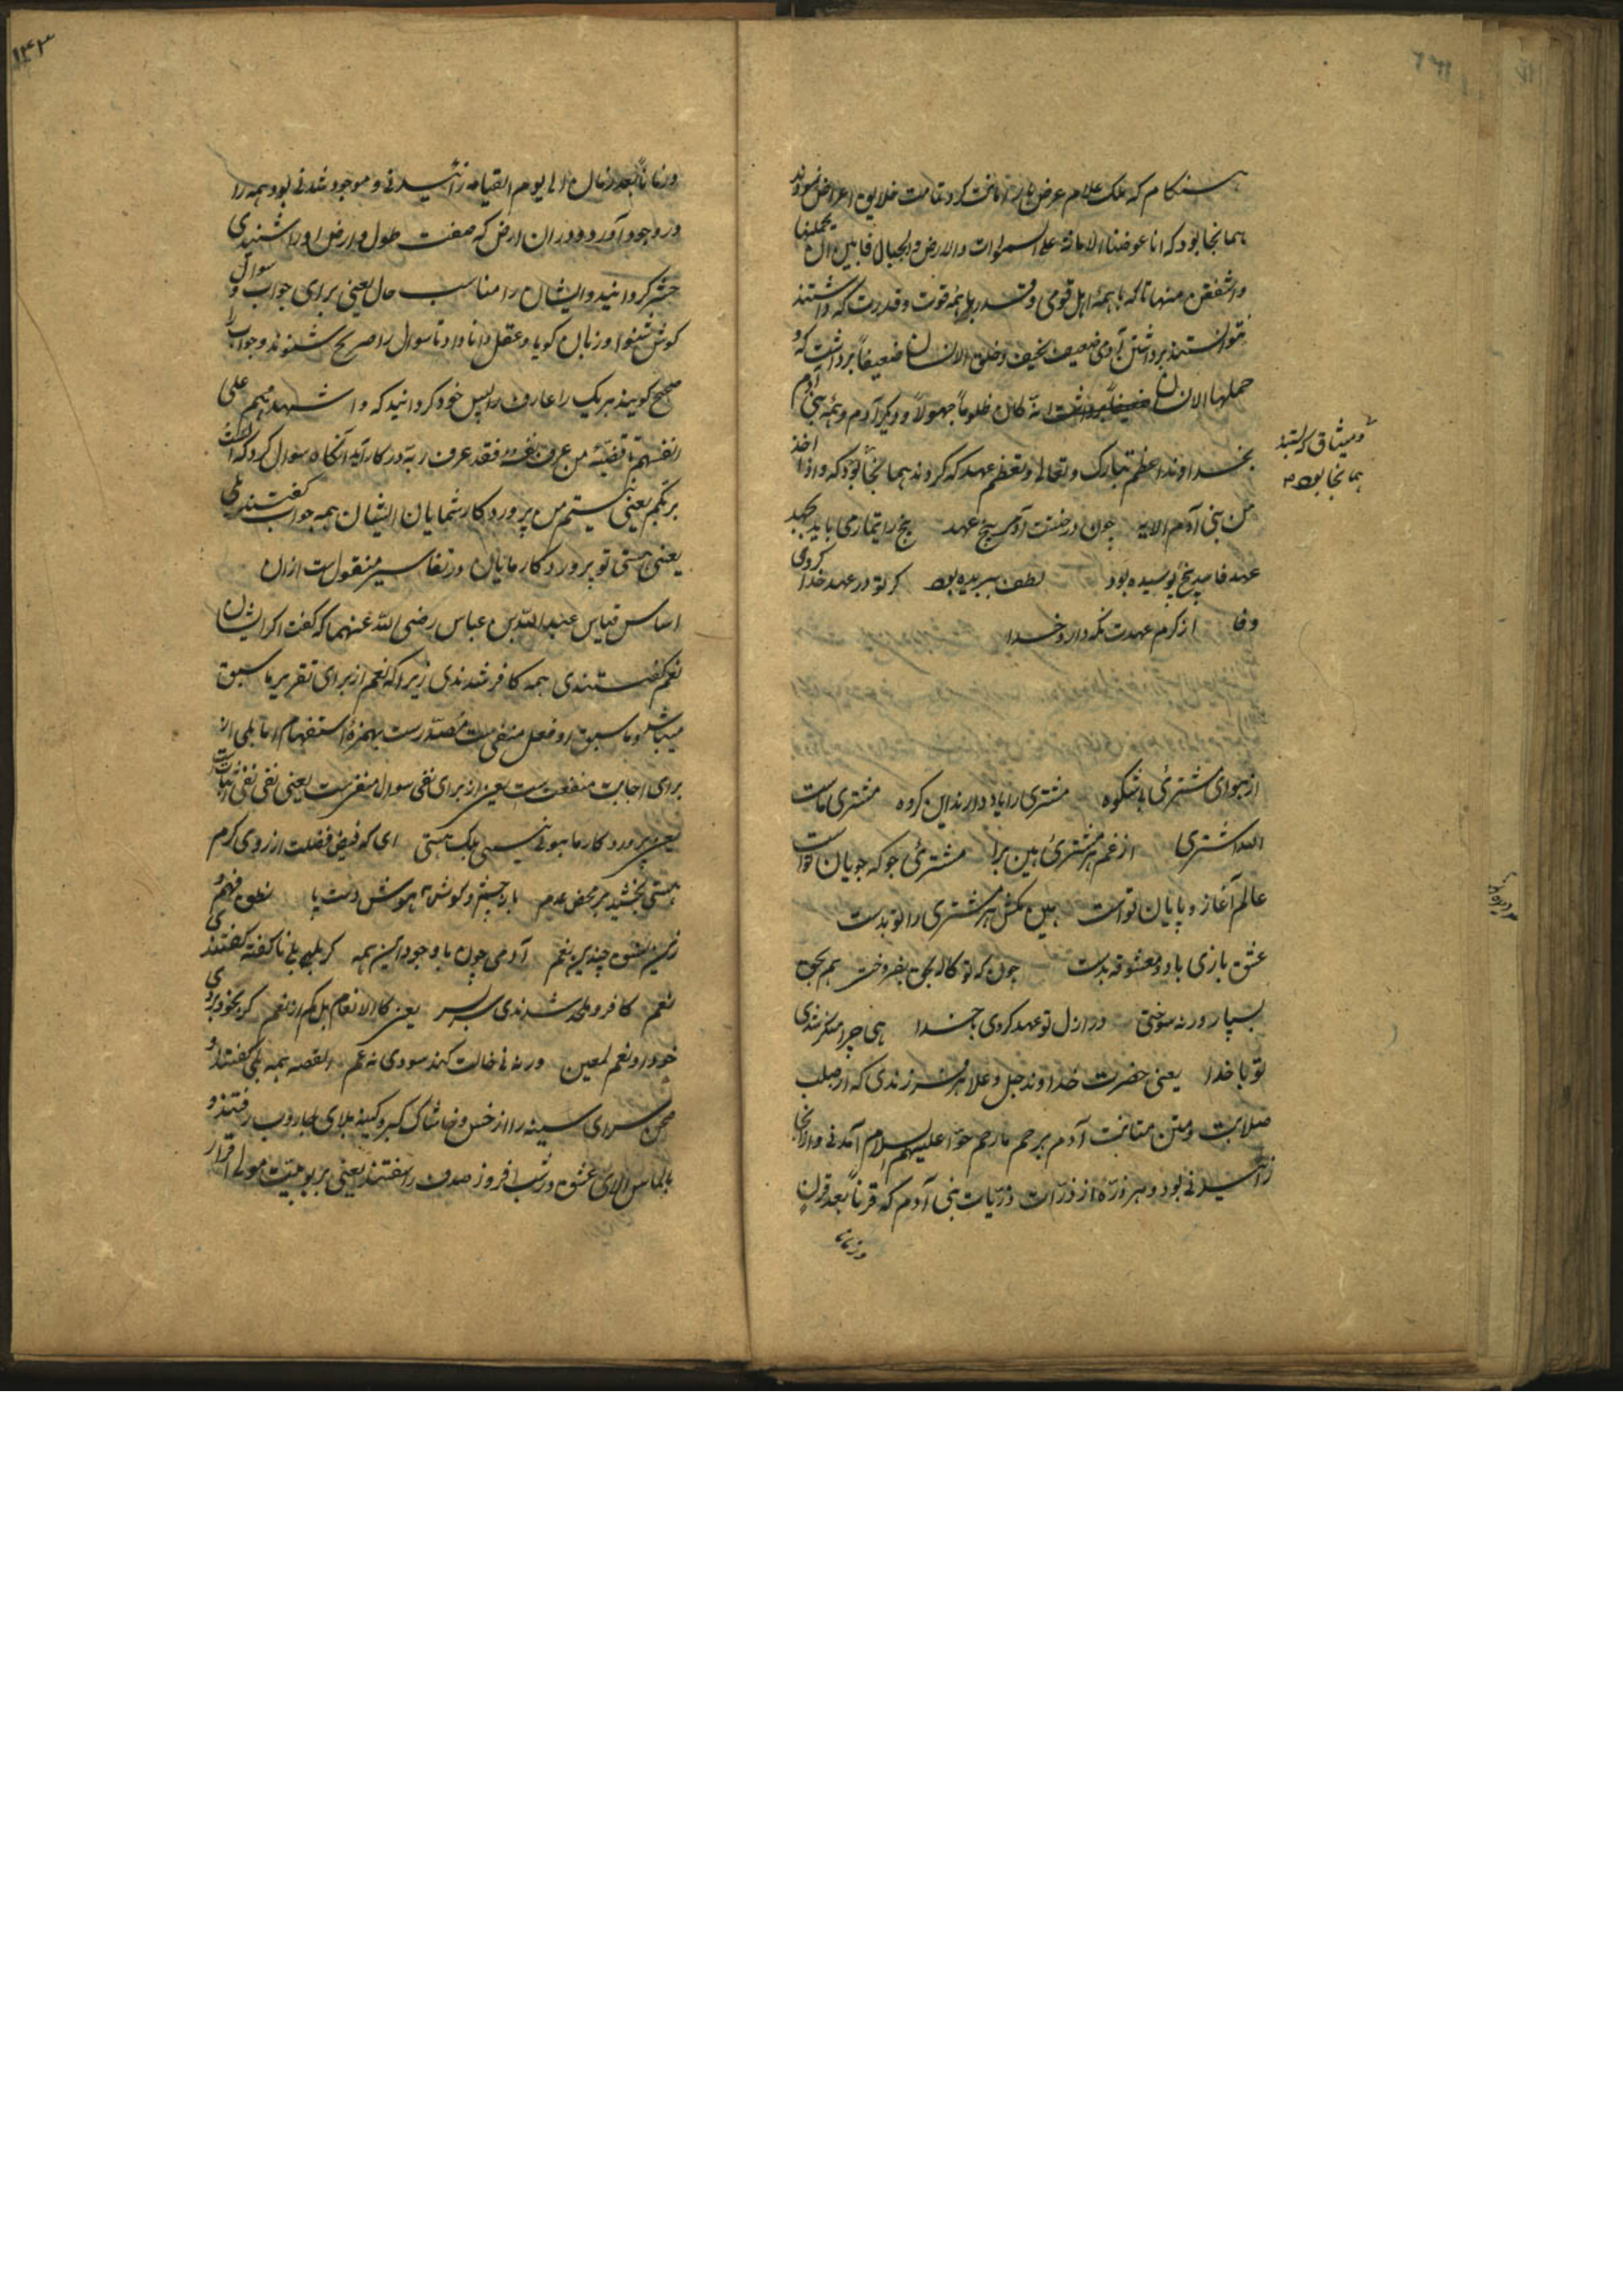 هنگام که ملک علام عرض بار امانت کرد تمامت خلایق اعراض نمودند
همانجا بود که انا عرضنا الامانة علی السموات والارض والجبال فابین ان یحملنها
واشفقن منها تا که با همهٔ اهل قومی و قدر با همه قوت و قدرت که داشتند
نتوانستند برداشتن آدمی ضعیف نحیف و خلق الانسان ضعیفاً برداشت که و
حملها الانسان انه کان ظلوماً جهولاً و دیگر آدم و همه بنی آدم
بخداوند اعظم تبارک و تعالی و تعظم عهد که کردند همانجا بود که واذ اخذ
و میثاق که بستند
همانجا بود
من بنی آدم الایه چون درختست آدمی بیخ عهد بیخ را تیمار می باید بجهد
عهد فاسد بیخ پوسیده بود لطف ببریده بود گر تو در عهد خدا کردی
وفا از کرم عهدت نگه دارد خدا
از هوای مشتریٔ باشکوه مشتری را باد دادند این گروه مشتری ماست
الله اشتری از غم هر مشتریٔ بین برا مشتریٔ جو که جویان تو است
عالم آغاز و پایان تو است هین مکش هر مشتری را تو بدست
عشق بازی با دو معشوقه بدست چون که تو کاله بحق بفروختی هم بحق
بسپار ورنه سوختی در ازل تو عهد کردی با خدا هی چرا منکر شدی
تو با خدا یعنی حضرت خداوند جل و علا هر فرزندی که از صلب
صلابت و متن متانت آدم برحم مارحم حوا علیهم السلام آمدنی و از آنجا
زائیدنی بود و هر ذرّه از ذرّات ذرّیات بنی آدم که قرناً بعد قرنٍ
و زماناً
۱۴۳
و زماناً بعد زمان الی یوم القیامه زائیدنی و موجود شدنی بود همه را
در وجود آورد و در ان ارض که صفت طول و عرض او را شنیدی
حشر گردانید و ایشان را مناسب حال یعنی برای جواب و سوال
گوش شنوا و زبان گویا و عقل دانا داد تا سوال را صریح شنوند و جواب را
صحیح گویند هر یک را عارف رب خود گردانید که و اشهدهم علی
انفسهم تا قضیّه من عرف نفسه فقد عرف ربه در کار آید آنگاه سوال کرد که الست
بربکم یعنی نیستم من پروردگار شمایان ایشان همه جواب گفتند بلی
یعنی هستی تو پروردگار مایان در تفاسیر منقول ست از ان
اساس قیاس عبد الله بن عباس رضی الله عنهما که گفت اگر ایشان
نعم گفتندی همه کافر شدندی زیرا که نعم از برای تقریر ما سبق
میباشد و ما سبق او فعل منفی ست مصدّر ست بهمزهٔ استفهام اما بلی از
برای اجابت منفعت ست یعنی از برای نفی سوال منفی ست یعنی نفی نفی اثبات ست
یعنی پروردگار ما هستی ای که فیض فضلت از روی کرم
هستی بخشید بر محض عدم با چشم و گوش هوش دست پا نطق و فهم و
زین نسق چندین نعم آدمی چون با وجود این همه گر بلی ناگفته گفتندی
نعم کافر و ملحد شدندی سربسر یعنی کالانعام بل کم از نعم گر بخود بردی
خود رو نعم لمعین ورنه نی خالت کند سودی نه عم القصه همه بلی گفتند و
صحن سرای سینه را از خس و خاشاک کبر و کینه بلای جاروب رفتند و
بالماس الای عشق در شب افروز صدف را سفتند یعنی بربوبیت مولی اقرار